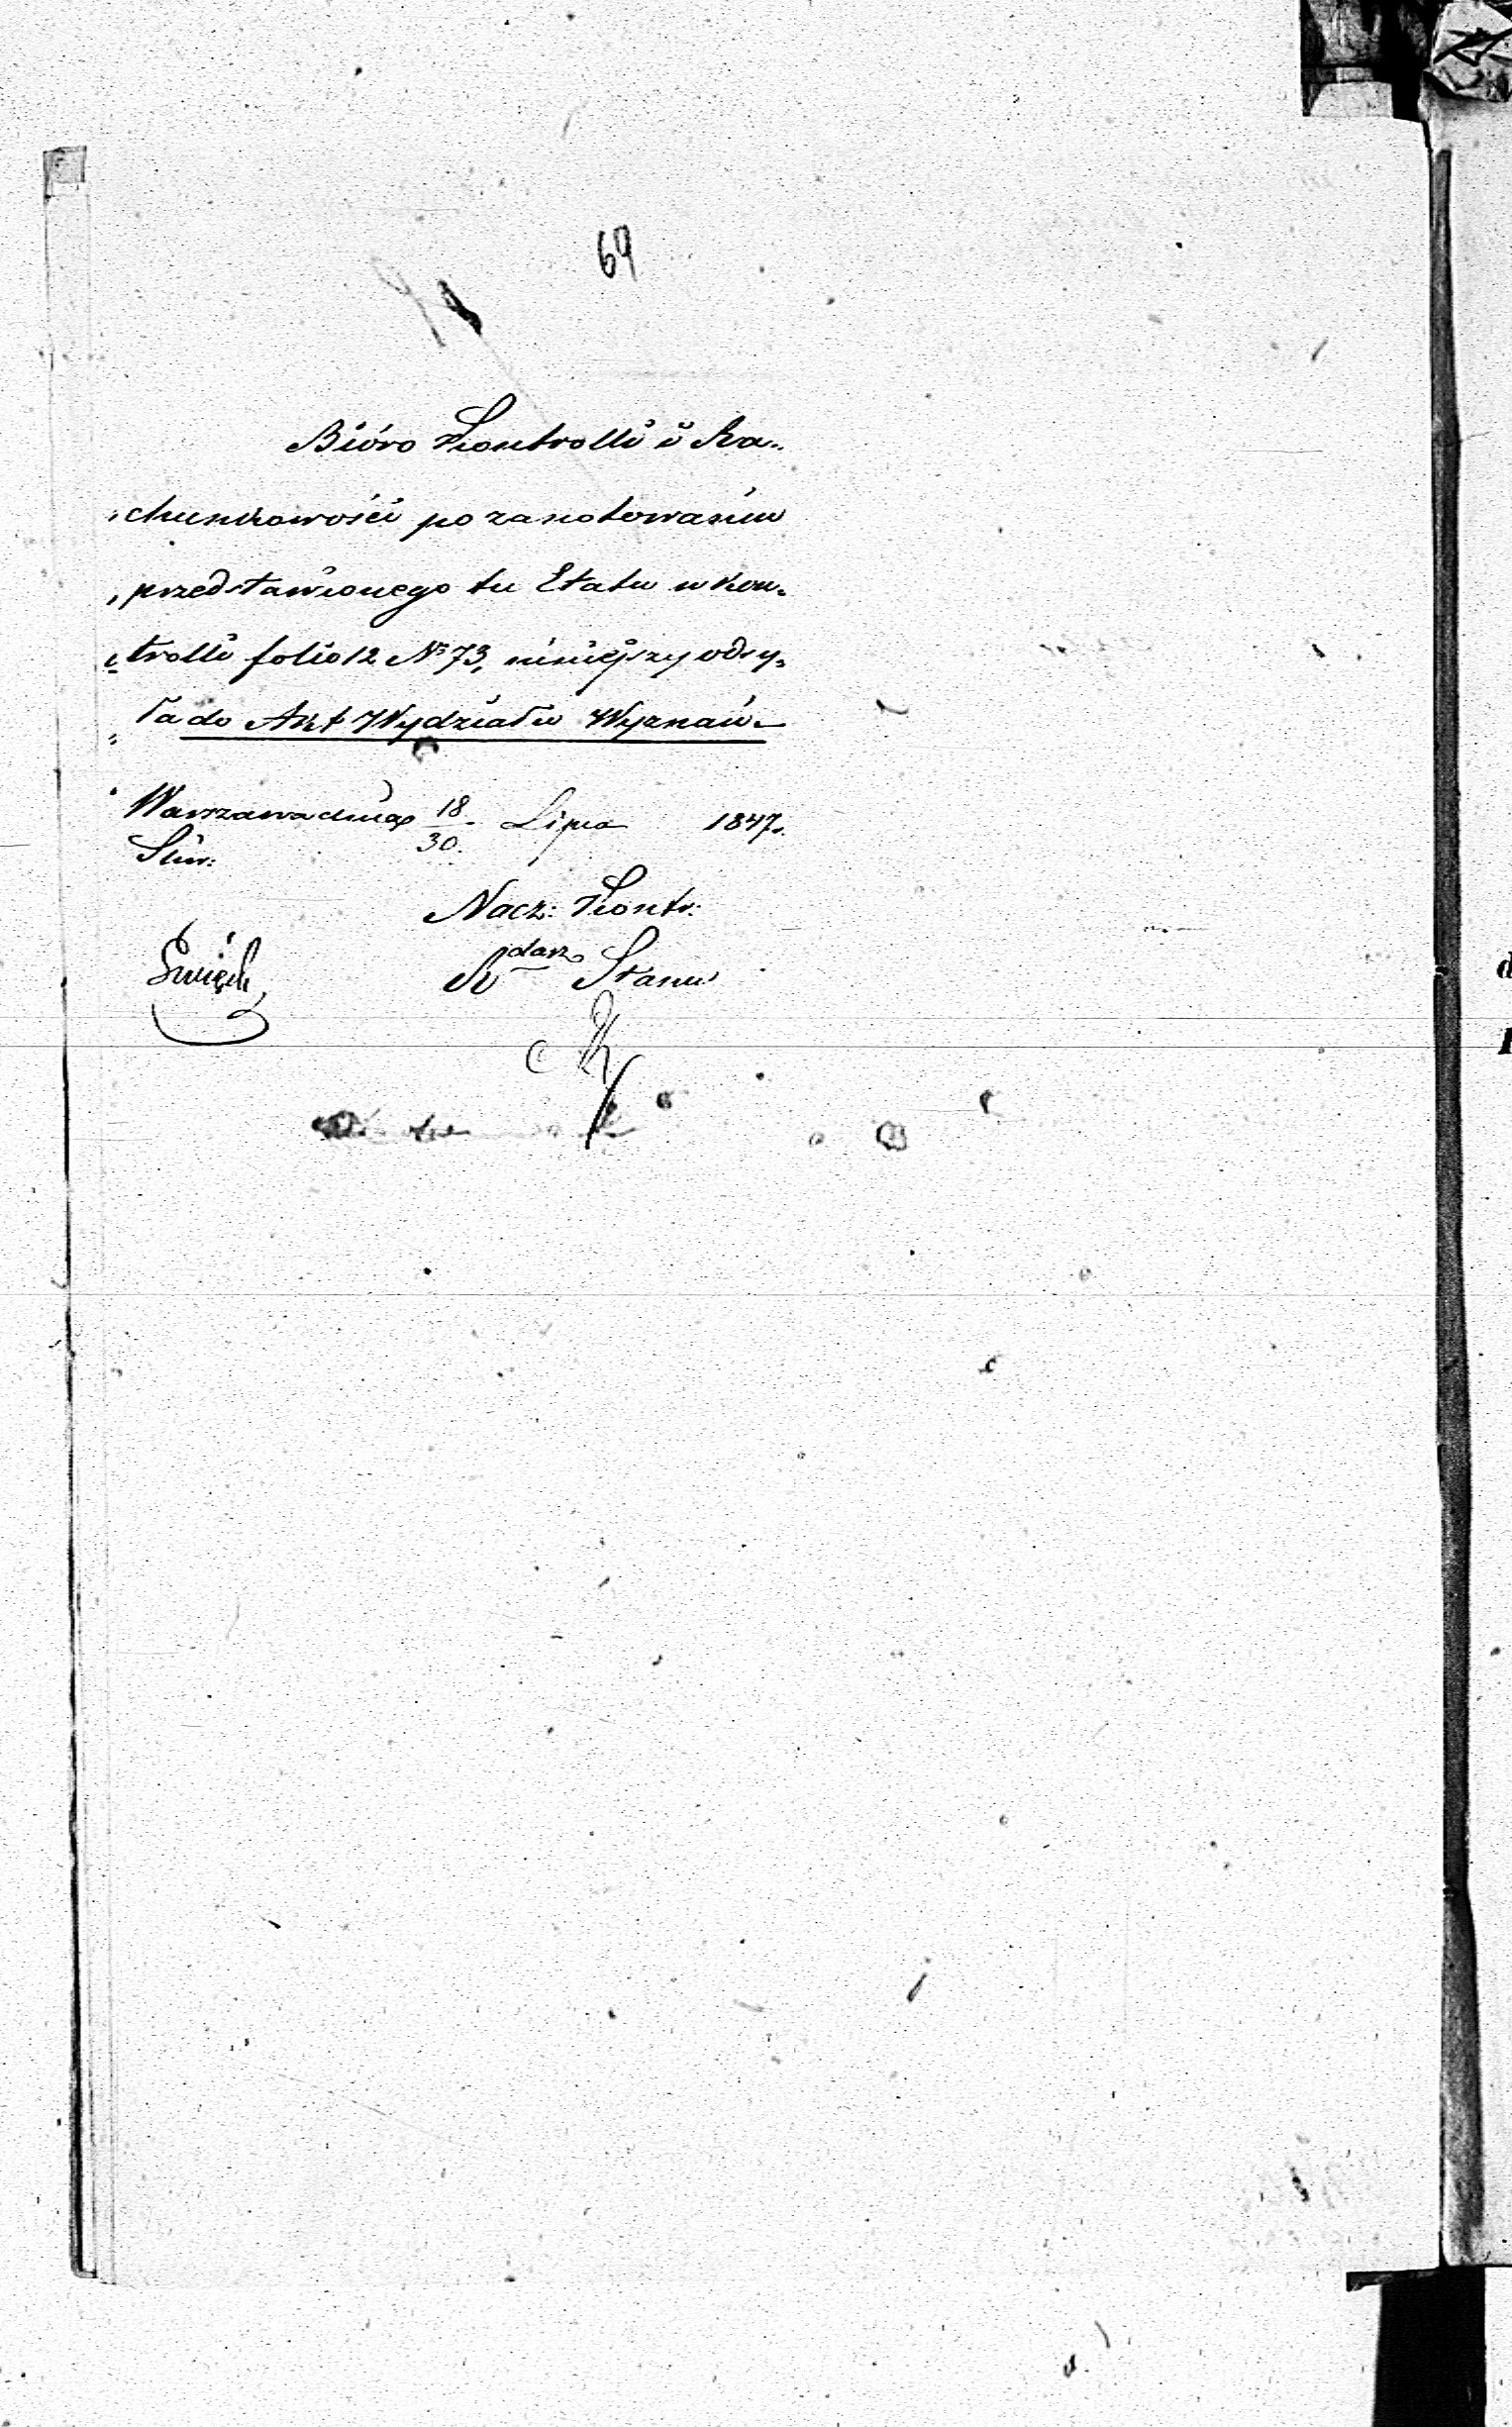 69
Bióro Kontrolli i Ra-
chunkowości po zanotowaniu
przedstawionego tu Etatu w kon-
trolli folio 12 No 73, niniejszy odsy-
ła do Akt Wydziału Wyznań.
Warszawa dnia 18/30 Lipca 1847.
Nacz: Kontr:
R darz Stanu